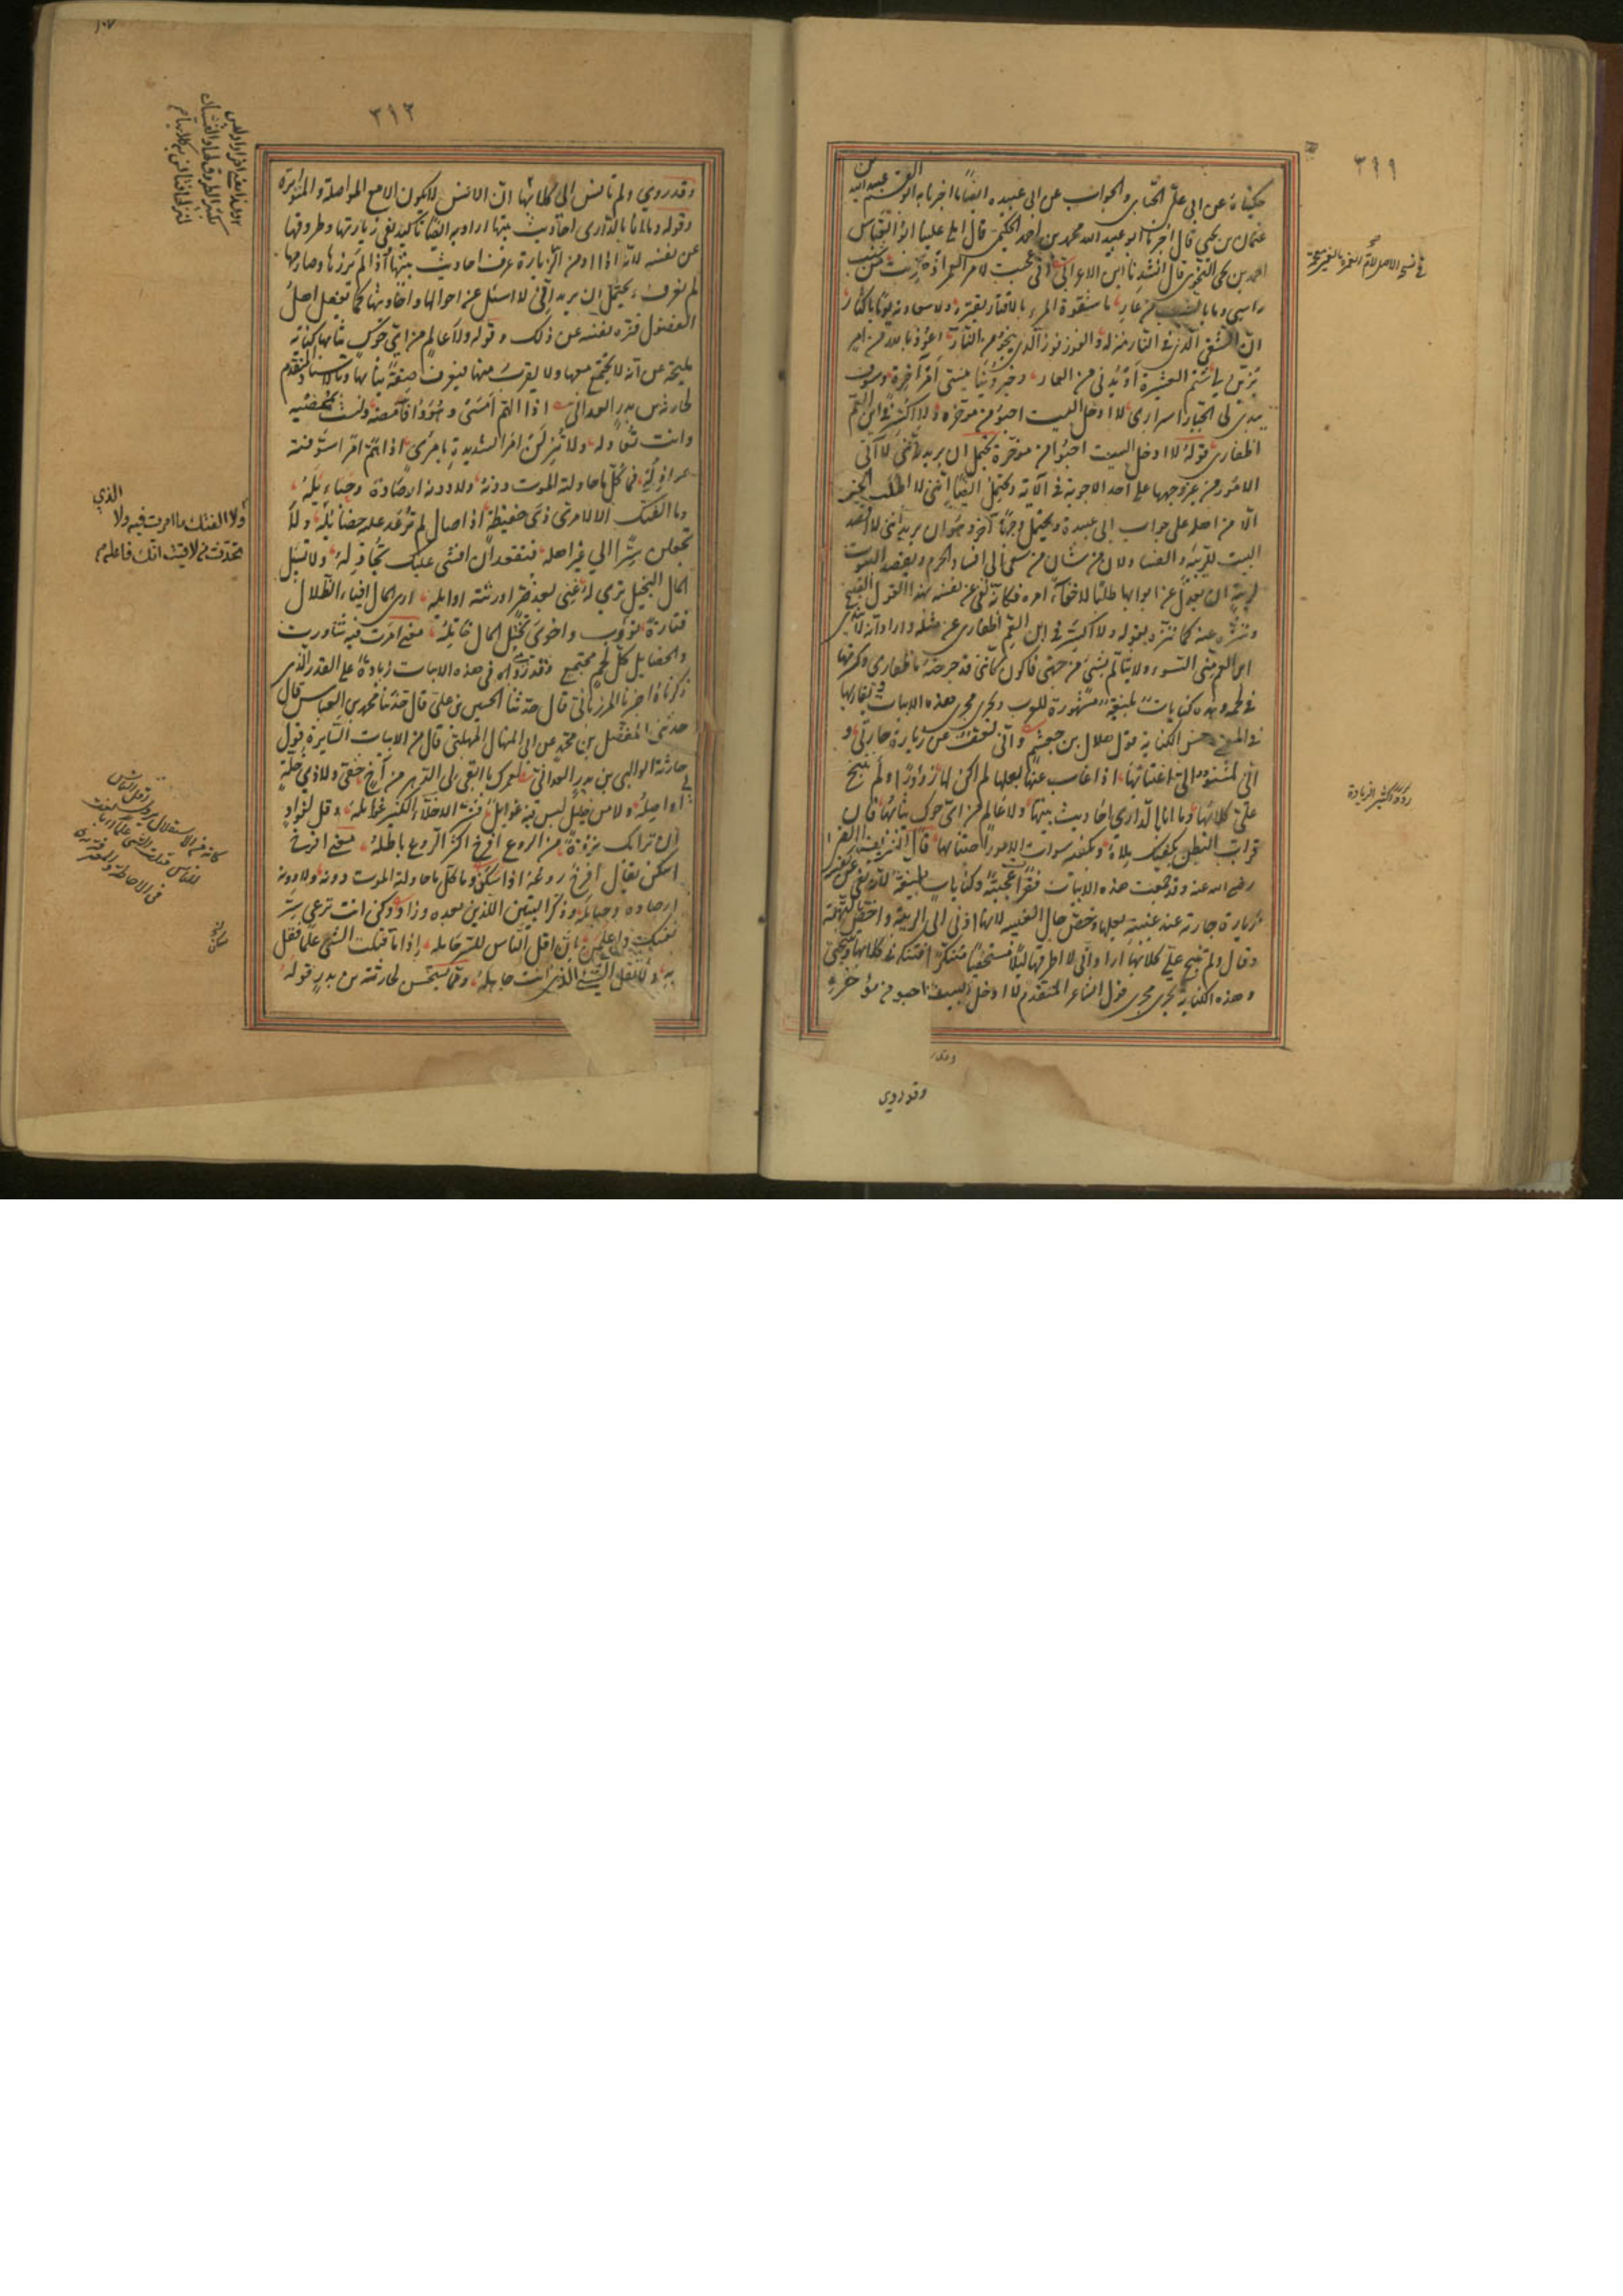 ٣٩٩
حكيناه عن ابي علي الجبائي والجواب عن ابي عبيده ايضا ما اخبرنا به ابو القسم عبيد الله بن
عثمان بن يحيى قال اخبرنا ابو عبد الله محمد بن احمد الحكيمي قال املى علينا ابو العباس
احمد بن يحيى النحوي قال انشدنا ابن الاعرابي اني عجبت لام العمر اذ هزئت من شيب
راسي وما بالشيب من عار ما شقوة المرء بالاقتار يقتره ولا سعادته يوما باكثار
ان الشقي الذي في النار منزله والفوز فوز الذي ينجو من النار اعوذ بالله من امر
يزين لي شتم العشيرة او يدني من العار وخير دنيا ينسي امر آخرة وسوف
يبدي لي الجبار اسراري لا ادخل البيت احبو من مؤخره ولا اكسر في ابن العم
اظفاري قوله لا ادخل البيت احبو من مؤخره يحتمل ان يريد انني لا آتي
الامور من غير وجهها على احد الاجوبة في الآية ويحتمل ايضا انني لا اطلب الخير
الا من اهله على جواب ابي عبيدة ويحتمل وجها آخر وهو ان يريد انني لا اقصد
البيت للريبة والفساد لان من شان من سعى الى افساد الحرم ويقصد البيوت
لريبة ان يعدل عن ابوابها طلبا لاخفاء امره فكانه نفى عن نفسه بهذا القول القبيح
وتنزه عنه كما تنزه بقوله ولا اكسر في ابن العم اظفاري عن مثله واراد انه لا يندى
ابن العم مني السوء ولا يتالم بشيء من جهتي فاكون كانني قد جرحته باظفاري وكسرتها
في لحمه وهذه كنايات بليغة مشهورة للعرب ويجري مجرى هذه الابيات وتقاربها
في المعنى وحسن الكناية قول هلال بن خثعم واني لعف عن زيارة جارتي و
اني لمشنوء الي اغتيابها اذا غاب عنها بعلها لم اكن لها زؤورا ولم تنبح
علي كلابها وما انا بالداري احاديث بيتها ولا عالم من اي حوك ثيابها وان
قراب البطن يكفيك ملاه ويكفيك سوات الامور اجتنابها قال الشريف المرتضى
رضي الله عنه وقد جمعت هذه الابيات فقرا عجيبة وكنايات بليغة لانه نفى عن نفسه
زيارة جارته عند غيبة بعلها وخص حال الغيبة لانها ادنى الى الريبة واخص بالتهمة
وقال ولم تنبح علي كلابها اراد اني لا اطرقها ليلا مستخفيا متنكرا فتنكرني كلابها وتنبحني
وهذه الكناية تجري مجرى قول الشاعر المتقدم لا ادخل البيت احبو من مؤخره
وقد روي
زؤورا كثير الزيادة
٣٩٢
١٠٧
وقد روي ولم تانس الي كلابها لان الانس لا يكون الا مع المواصلة والمواترة
وقوله وما انا بالداري احاديث بيتها اراد به ايضا تاكيد نفي زيارتها وطروقها
عن نفسه لانه اذا ادمن الزيارة عرف احاديث بيتها واذا لم يزرها وصارمها
لم يعرف ويحتمل ان يريد اني لا اسئل عن احوالها واحاديثها كما يفعل اهل
الفضول فنزه نفسه عن ذلك وقوله ولا عالم من اي حوك ثيابها كناية
مليحة عن انه لا يجتمع معها ولا يقرب منها فيعرف صفة ثيابها
لحارثة بن بدر الغداني اذا الهم امسى وهو داء فامضه ولست بممضيه
وانت تعادله ولا تنزلن امر الشديدة بامرئ اذا هم امرا عوقته
عواذله فما كل ما حاولته الموت دونه ولا دونه ارصاده وحبائله
وما الفتك الا لامرئ ذي حفيظة اذا صال لم ترعد عليه خصائله ولا
تجعلن سرا الى غير اهله فتقعد ان افشى عليك تجادله ولا تسئل
المال البخيل ترى له غنى بعد ضر اورثته اوائله ارى المال افياء الظلال
فتارة يؤوب واخرى تختل المال خاتله معنى امرت فيه شاورت
والخصايل كل لحم مجتمع وقد روي في هذه الابيات زيادة على القدر الذي
ذكرناه اخبرنا المرزباني قال حدثنا الحسين بن علي قال حدثنا محمد بن العباس قال
حدثني المفضل بن محمد عن ابي المنهال المهلبي قال من الابيات السايرة قول
حارثة بن بدر الغداني لعمرك ما ابقى لي الدهر من اخ حفي ولا ذي خلة
لي اواصله ولا من خليل ليس فيه غوائل فشر الاخلاء الكثير غوائله وقل لفؤاد
ان نزا بك نزوة من الروع افرخ اكثر الروع باطله معنى افرخ
اسكن يقال افرخ روعه اذا سكن وما كل ما حاولته الموت دونه ولا دونه
ارصاده وحبائله وذكر البيتين اللذين بعده وزاد وكن انت ترعى سر
نفسك واعلمن بان اقل الناس للسر حامله اذا ما قتلت الشيء علما فقل
به ولا تقل الشيء الذي انت جاهله ومما يستحسن لحارثة بن بدر قوله
ولا الفتك ما امرت فيه ولا الذي
تحدثت من لاقيت انك فاعله